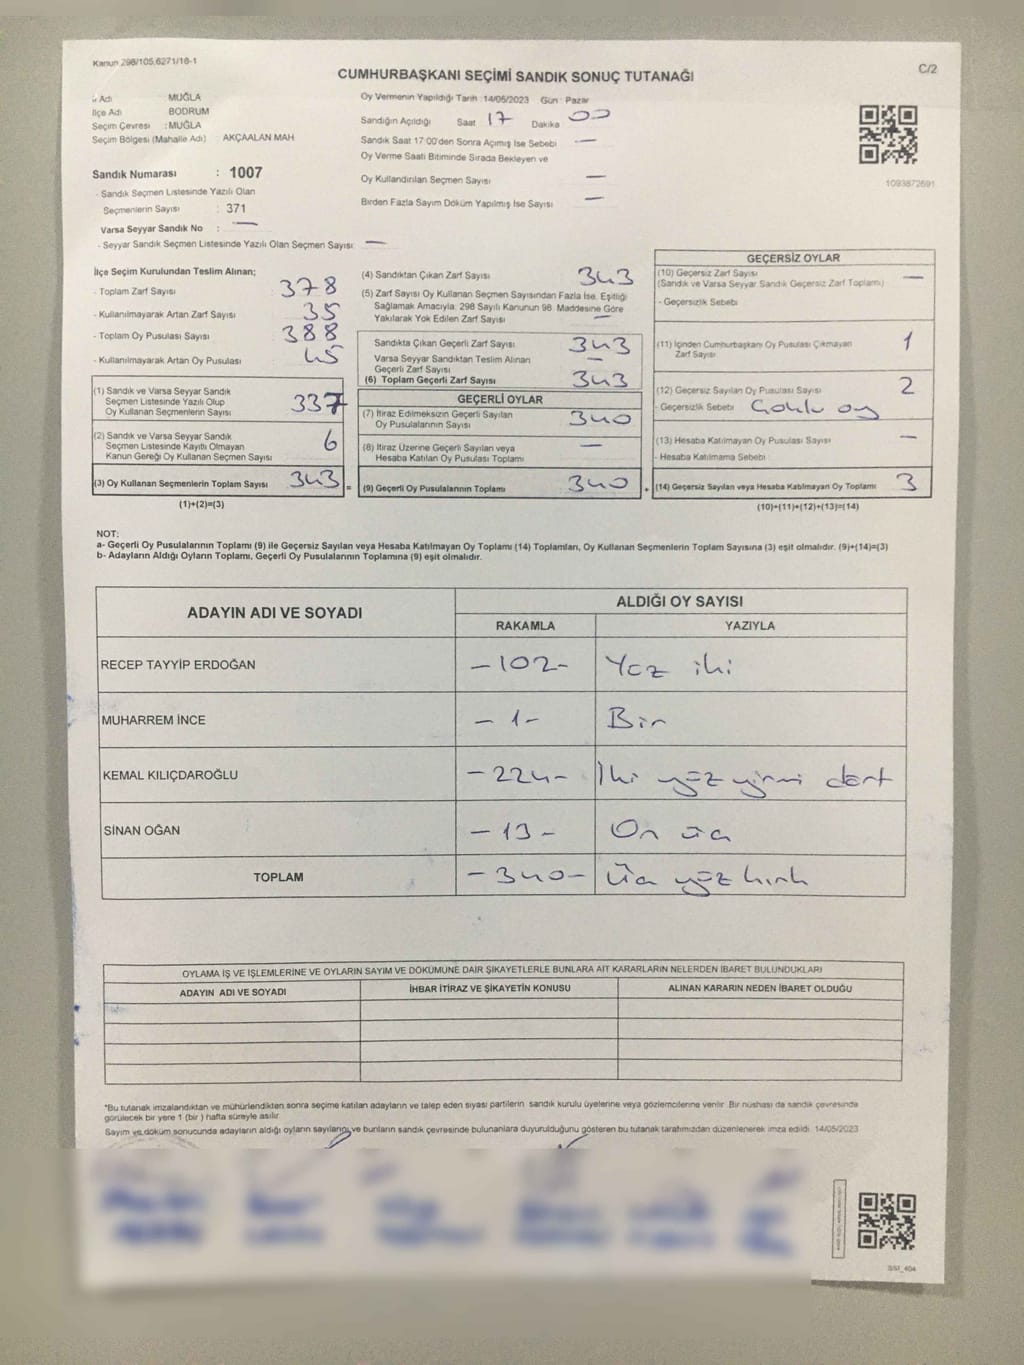 Kanun 298/105,6271/18-1
C/2
CUMHURBAŞKANI SEÇİMİ SANDIK SONUÇ TUTANAĞI
Adı MUĞLA
İlçe Adı BODRUM
Seçim Çevresi : MUĞLA
Seçim Bölgesi (Mahalle Adı) : AKÇAALAN MAH
Oy Vermenin Yapıldığı Tarih : 14/05/2023 Gün : Pazar
Sandığın Açıldığı Saat 17 Dakika 00
Sandık Saat 17:00'den Sonra Açımış İse Sebebi —
Oy Verme Saati Bitiminde Sırada Bekleyen ve
Oy Kullandırılan Seçmen Sayısı —
Birden Fazla Sayım Döküm Yapılmış İse Sayısı —
1093872691
Sandık Numarası : 1007
- Sandık Seçmen Listesinde Yazılı Olan
Seçmenlerin Sayısı : 371
Varsa Seyyar Sandık No : —
- Seyyar Sandık Seçmen Listesinde Yazılı Olan Seçmen Sayısı —
İlçe Seçim Kurulundan Teslim Alınan;
- Toplam Zarf Sayısı 378
- Kullanılmayarak Artan Zarf Sayısı 35
- Toplam Oy Pusulası Sayısı 388
- Kullanılmayarak Artan Oy Pusulası 45
(1) Sandık ve Varsa Seyyar Sandık
Seçmen Listesinde Yazılı Olup
Oy Kullanan Seçmenlerin Sayısı 337
(2) Sandık ve Varsa Seyyar Sandık
Seçmen Listesinde Kayıtlı Olmayan
Kanun Gereği Oy Kullanan Seçmen Sayısı 6
(3) Oy Kullanan Seçmenlerin Toplam Sayısı 343 =
(1)+(2)=(3)
(4) Sandıktan Çıkan Zarf Sayısı 343
(5) Zarf Sayısı Oy Kullanan Seçmen Sayısından Fazla İse, Eşitliği
Sağlamak Amacıyla; 298 Sayılı Kanunun 98. Maddesine Göre
Yakılarak Yok Edilen Zarf Sayısı —
Sandıkta Çıkan Geçerli Zarf Sayısı 343
Varsa Seyyar Sandıktan Teslim Alınan
Geçerli Zarf Sayısı —
(6) Toplam Geçerli Zarf Sayısı 343
GEÇERLİ OYLAR
(7) İtiraz Edilmeksizin Geçerli Sayılan
Oy Pusulalarının Sayısı 340
(8) İtiraz Üzerine Geçerli Sayılan veya
Hesaba Katılan Oy Pusulası Toplamı —
(9) Geçerli Oy Pusulalarının Toplamı 340 +
GEÇERSİZ OYLAR
(10) Geçersiz Zarf Sayısı —
(Sandık ve Varsa Seyyar Sandık Geçersiz Zarf Toplamı)
- Geçersizlik Sebebi
(11) İçinden Cumhurbaşkanı Oy Pusulası Çıkmayan
Zarf Sayısı 1
(12) Geçersiz Sayılan Oy Pusulası Sayısı 2
- Geçersizlik Sebebi Çoklu oy
(13) Hesaba Katılmayan Oy Pusulası Sayısı —
- Hesaba Katılmama Sebebi
(14) Geçersiz Sayılan veya Hesaba Katılmayan Oy Toplamı 3
(10)+(11)+(12)+(13)=(14)
NOT:
a- Geçerli Oy Pusulalarının Toplamı (9) ile Geçersiz Sayılan veya Hesaba Katılmayan Oy Toplamı (14) Toplamları, Oy Kullanan Seçmenlerin Toplam Sayısına (3) eşit olmalıdır. (9)+(14)=(3)
b- Adayların Aldığı Oyların Toplamı, Geçerli Oy Pusulalarının Toplamına (9) eşit olmalıdır.
ADAYIN ADI VE SOYADI
ALDIĞI OY SAYISI
RAKAMLA YAZIYLA
RECEP TAYYİP ERDOĞAN -102- Yüz iki
MUHARREM İNCE -1- Bir
KEMAL KILIÇDAROĞLU -224- İki yüz yirmi dört
SİNAN OĞAN -13- On üç
TOPLAM -340- Üç yüz kırk
OYLAMA İŞ VE İŞLEMLERİNE VE OYLARIN SAYIM VE DÖKÜMÜNE DAİR ŞİKAYETLERLE BUNLARA AİT KARARLARIN NELERDEN İBARET BULUNDUKLARI
ADAYIN ADI VE SOYADI İHBAR İTİRAZ VE ŞİKAYETİN KONUSU ALINAN KARARIN NEDEN İBARET OLDUĞU
*Bu tutanak imzalandıktan ve mühürlendikten sonra seçime katılan adayların ve talep eden siyasi partilerin, sandık kurulu üyelerine veya gözlemcilerine verilir. Bir nüshası da sandık çevresinde
görülecek bir yere 1 (bir ) hafta süreyle asılır.
Sayım ve döküm sonucunda adayların aldığı oyların sayılarını ve bunların sandık çevresinde bulunanlara duyurulduğunu gösteren bu tutanak tarafımızdan düzenlenerek imza edildi. 14/05/2023
SSI_404